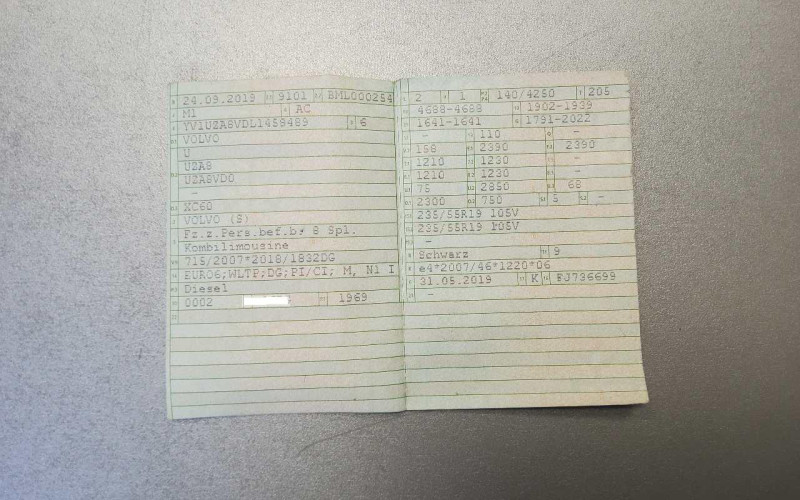 24.09.2019 9101 BML000254
M1 AC
YV1UZA8VDL1459489 6
VOLVO
U
UZA8
UZA8VD0
-
XC60
VOLVO (S)
Fz.z.Pers.bef.b. 8 Spl.
Kombilimousine
715/2007*2018/1832DG
EURO6;WLTP;DG;PI/CI; M, N1 I
Diesel
0002 1969
2 1 140/4250 205
4688-4688 1902-1939
1641-1641 1791-2022
- 110 -
158 2390 2390
1210 1230 -
1210 1230 -
75 2850 68
2300 750 5 -
235/55R19 105V
235/55R19 105V
-
Schwarz 9
e4*2007/46*1220*06
31.05.2019 K FJ736699
-